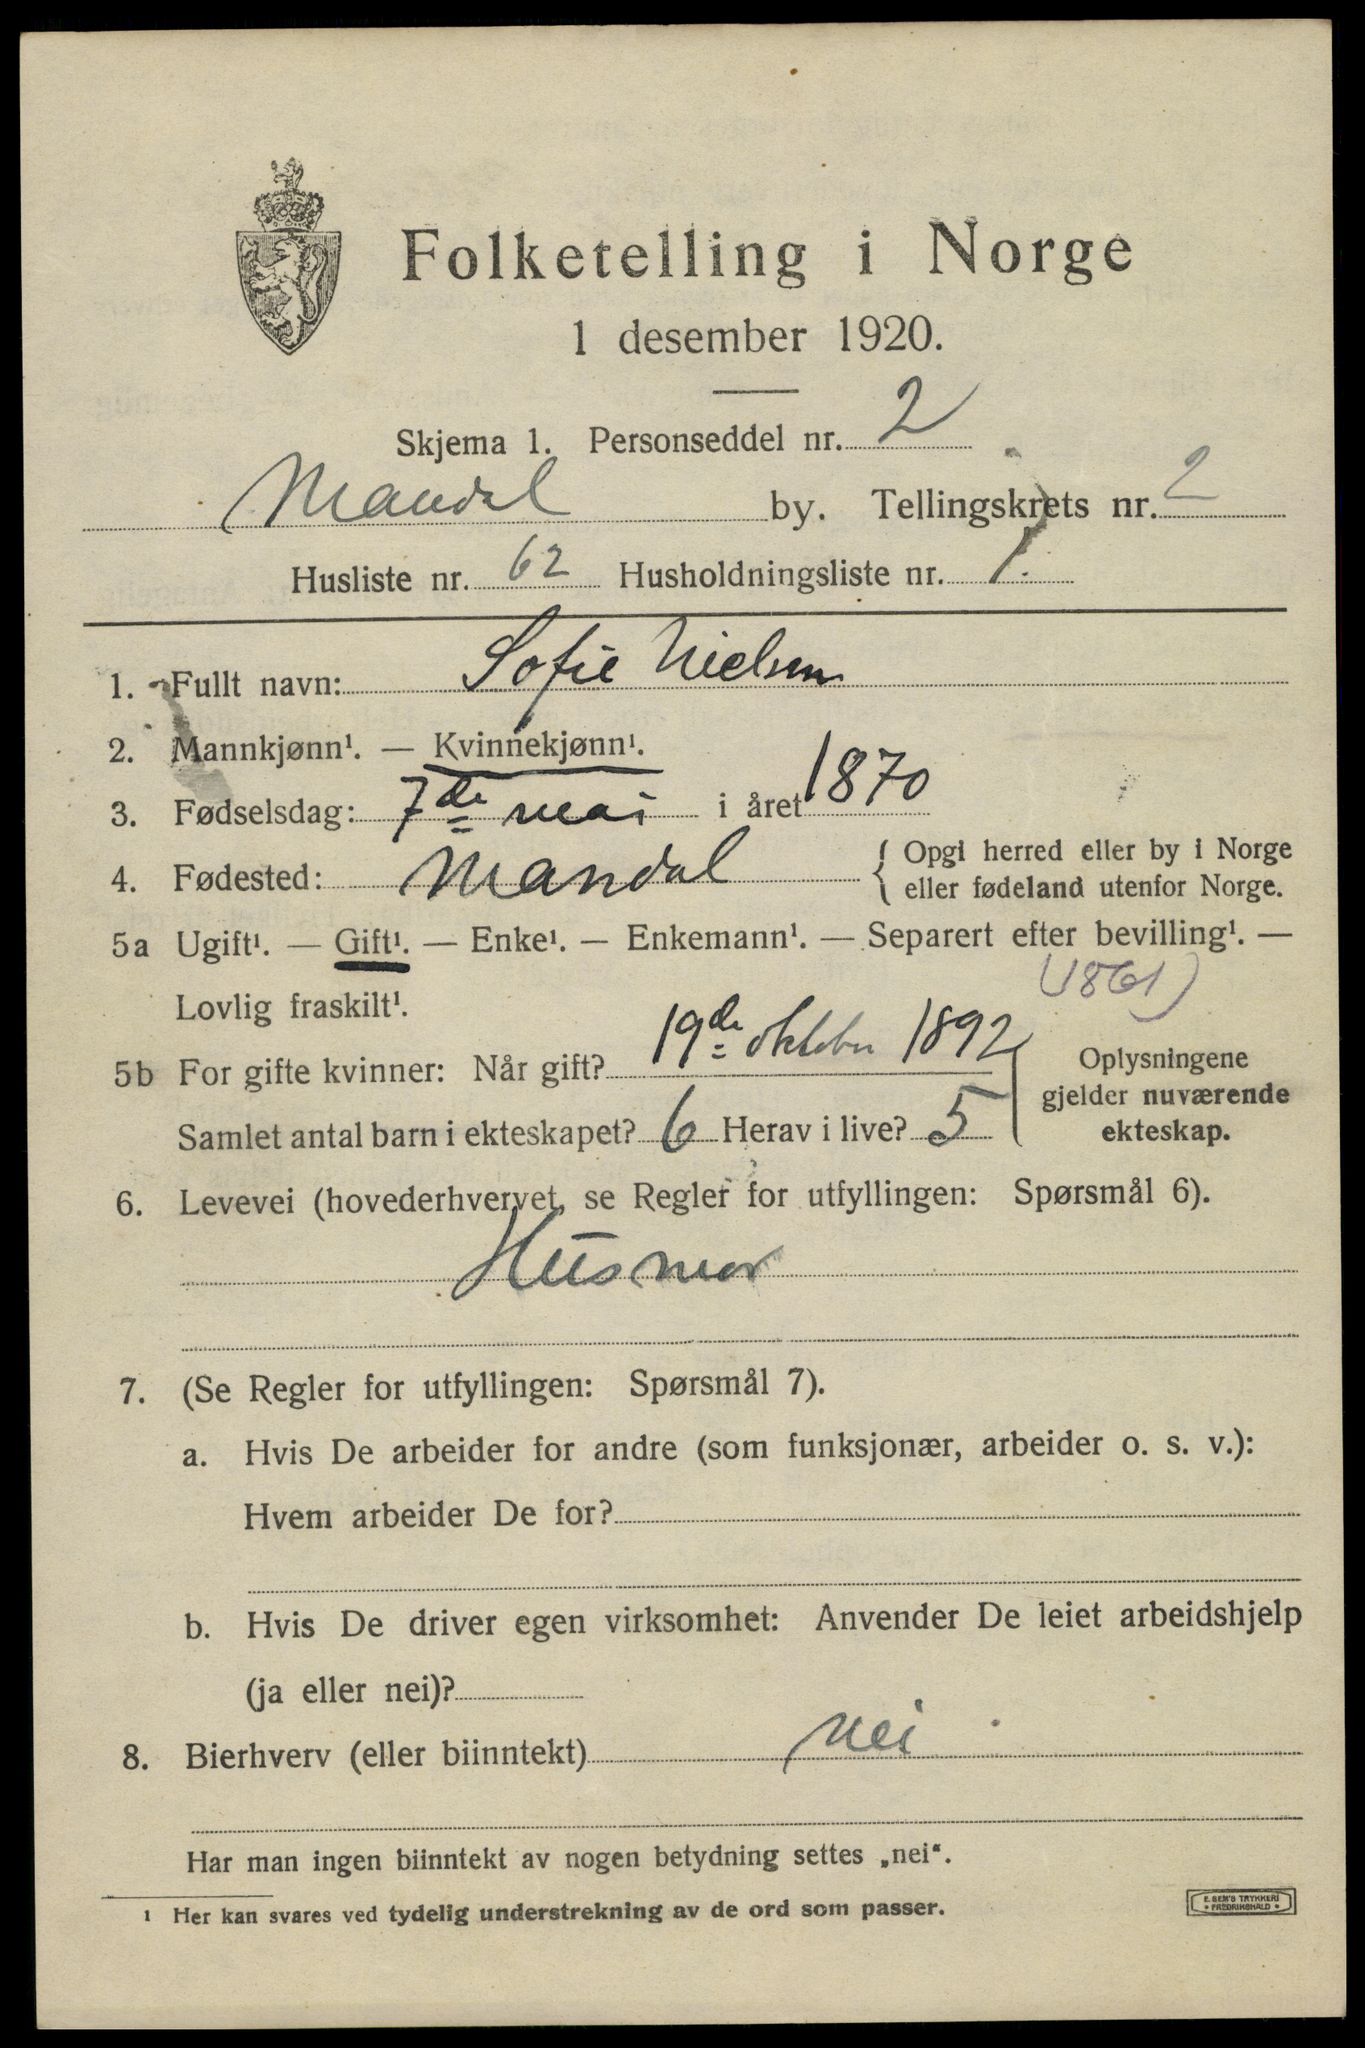 Folketelling i Norge
1 desember 1920.
Skjema 1. Personseddel nr. 2
Mandal by. Tellingskrets nr. 2
Husliste nr. 62 Husholdningsliste nr. 1.
1. Fullt navn: Sofie Nielsen
2. Mannkjønn¹. — Kvinnekjønn¹.
3. Fødselsdag: 7de mai i året 1870
4. Fødested: Mandal { Opgi herred eller by i Norge
eller fødeland utenfor Norge.
5a Ugift¹. — Gift¹. — Enke¹. — Enkemann¹. — Separert efter bevilling¹. —
Lovlig fraskilt¹. (1861)
5b For gifte kvinner: Når gift? 19de oktober 1892
Samlet antal barn i ekteskapet? 6 Herav i live? 5
Oplysningene
gjelder nuværende
ekteskap.
6. Levevei (hovederhvervet, se Regler for utfyllingen: Spørsmål 6).
Husmor
7. (Se Regler for utfyllingen: Spørsmål 7).
a. Hvis De arbeider for andre (som funksjonær, arbeider o. s. v.):
Hvem arbeider De for?
b. Hvis De driver egen virksomhet: Anvender De leiet arbeidshjelp
(ja eller nei)?
8. Bierhverv (eller biinntekt) nei
Har man ingen biinntekt av nogen betydning settes „nei“.
¹ Her kan svares ved tydelig understrekning av de ord som passer.
E. SEM'S TRYKKERI
• FREDRIKSHALD •